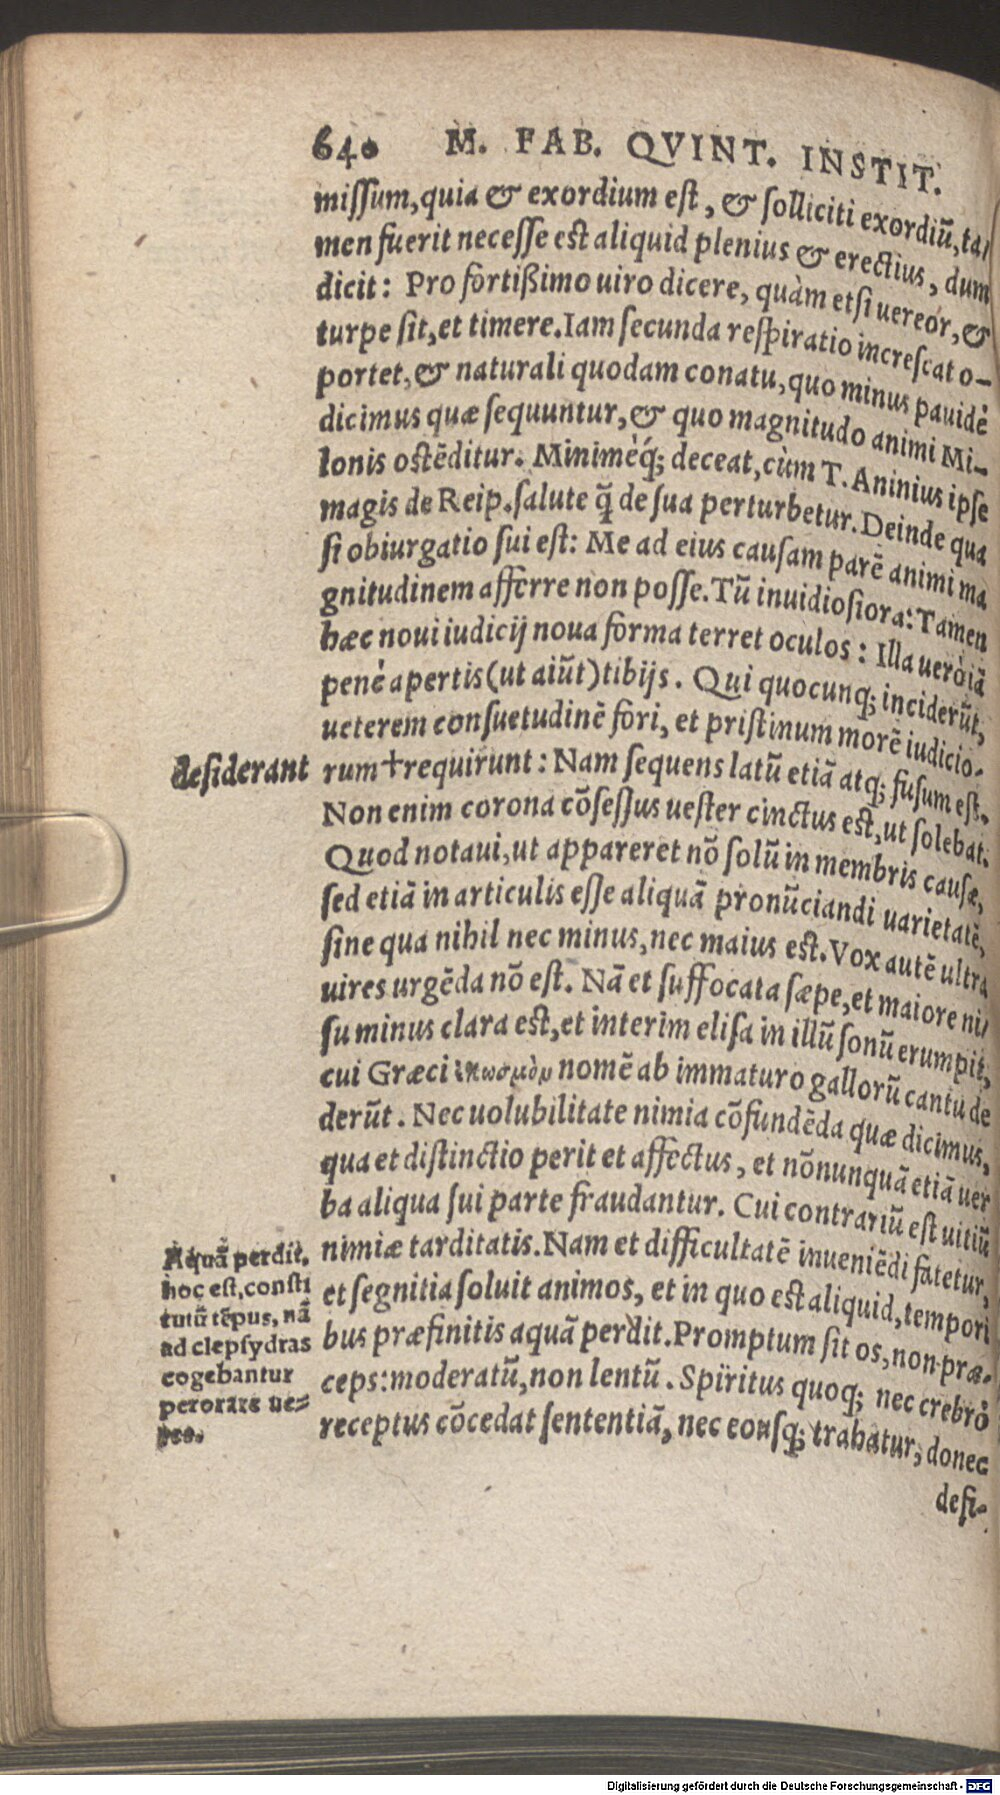 640 M. FAB. QVINT. INSTIT.
missum, quia & exordium est, & solliciti exordiũ, ta/
men fuerit necesse est aliquid plenius & erectius, dum
dicit: Pro fortißimo uiro dicere, quàm etsi uereor, &
turpe sit, et timere. Iam secunda respiratio increscat o-
portet, & naturali quodam conatu, quo minus pauidè
dicimus quæ sequuntur, & quo magnitudo animi Mi-
lonis ostẽditur. Minimè́q; deceat, cùm T. Aninius ipse
magis de Reip. salute q̃ de sua perturbetur. Deinde qua
si obiurgatio sui est: Me ad eius causam parẽ animi ma
gnitudinem afferre non posse. Tũ inuidiosiora: Tamen
hæc noui iudicij noua forma terret oculos: Illa uerò iã
penè apertis (ut aiũt) tibijs. Qui quocunq; inciderũt,
ueterem consuetudinẽ fori, et pristinum morẽ iudicio-
desiderant
rum † requirunt: Nam sequens latũ etiã atq; fusum est.
Non enim corona cõsessus uester cinctus est, ut solebat.
Quod notaui, ut appareret nõ solũ in membris causæ,
sed etiã in articulis esse aliquã pronũciandi uarietatẽ,
sine qua nihil nec minus, nec maius est. Vox autẽ ultra
uires urgẽda nõ est. Nã et suffocata sæpe, et maiore ni/
su minus clara est, et interim elisa in illũ sonũ erumpit,
cui Græci nomẽ ab immaturo gallorũ cantu de
derũt. Nec uolubilitate nimia cõfundẽda quæ dicimus,
qua et distinctio perit et affectus, et nõnunquã etiã uer
ba aliqua sui parte fraudantur. Cui contrariũ est uitiũ
nimiæ tarditatis. Nam et difficultatẽ inueniẽdi fatetur,
et segnitia soluit animos, et in quo est aliquid, tempori
bus præfinitis aquã perdit. Promptum sit os, non præ-
ceps: moderatũ, non lentũ. Spiritus quoq; nec crebrò
receptus cõcedat sententiã, nec eousq; trahatur, donec
desi-
Aquã perdit,
hoc est, consti
tutũ tẽpus, nã
ad clepsydras
cogebantur
perorare ue=